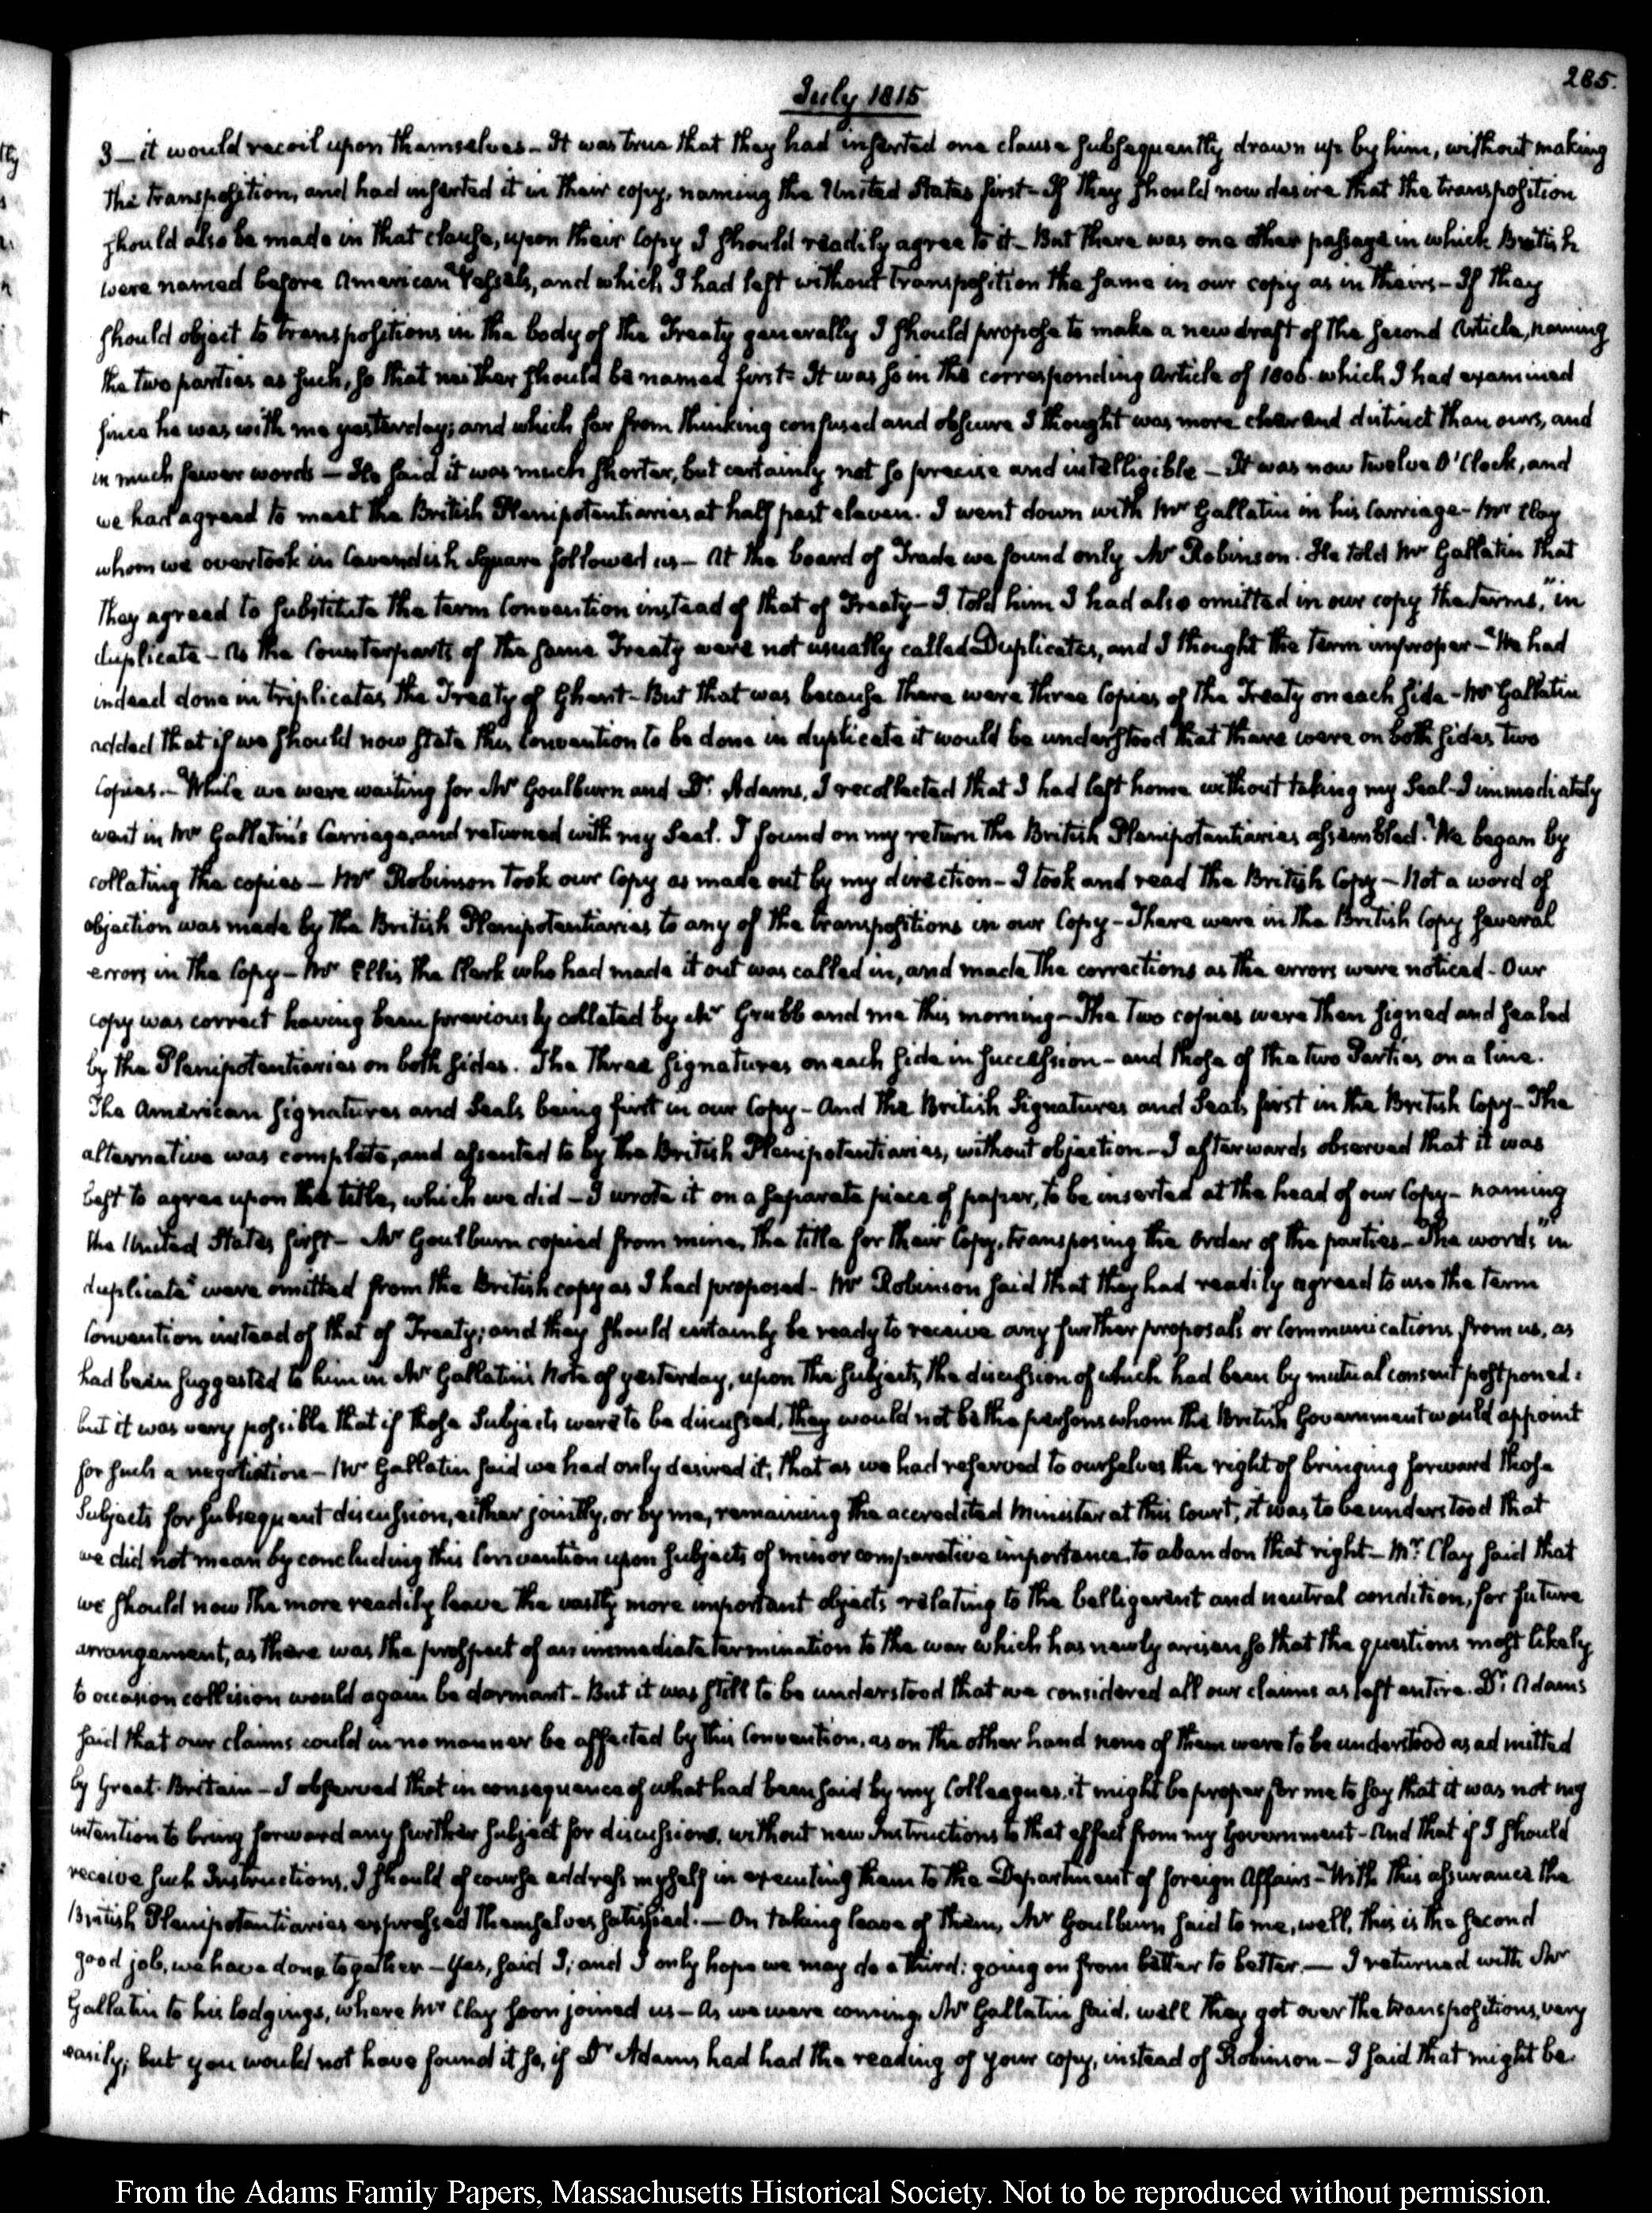 285.
July 1815
3 — it would recoil upon themselves — It was true that they had inserted one clause subsequently drawn up by him, without making
the transposition, and had inserted it in their copy, naming the United States first — If they should now desire that the transposition
should also be made in that clause, upon their Copy I should readily agree to it — But there was one other passage in which British
were named before American Vessels, and which I had left without transposition the same in our copy as in theirs — If they
should object to transpositions in the body of the Treaty generally I should propose to make a new draft of the second Article, naming
the two parties as such, so that neither should be named first — It was so in the corresponding Article of 1806. which I had examined
since he was with me yesterday; and which far from thinking confused and obscure I thought was more clear and distinct than ours, and
in much fewer words — He said it was much shorter, but certainly not so precise and intelligible — It was now twelve O'Clock, and
we had agreed to meet the British Plenipotentiaries at half past eleven. I went down with Mr Gallatin in his Carriage — Mr Clay
whom we overtook in Cavendish Square followed us — At the board of Trade we found only Mr Robinson. He told Mr Gallatin that
they agreed to substitute the term Convention instead of that of Treaty — I told him I had also omitted in our copy the terms, "in
duplicate — As the Counterparts of the same Treaty were not usually called Duplicates, and I thought the term improper — We had
indeed done in triplicates the Treaty of Ghent — But that was because there were three Copies of the Treaty on each side — Mr Gallatin
added that if we should now state this Convention to be done in duplicate it would be understood that there were on both sides two
Copies. — While we were waiting for Mr Goulburn and Dr. Adams, I recollected that I had left home without taking my Seal — I immediately
went in Mr Gallatin's Carriage, and returned with my Seal. I found on my return the British Plenipotentiaries assembled. We began by
collating the copies — Mr Robinson took our Copy as made out by my direction — I took and read the British Copy — Not a word of
objection was made by the British Plenipotentiaries to any of the transpositions in our Copy — There were in the British Copy several
errors in the Copy — Mr Ellis the Clerk who had made it out was called in, and made the corrections as the errors were noticed — Our
copy was correct having been previously collated by Mr Grubb and me this morning — The two copies were then signed and sealed
by the Plenipotentiaries on both sides. The three signatures on each side in succession — and those of the two Parties on a line.
The American signatures and Seals being first in our Copy — And the British Signatures and Seals first in the British Copy — The
alternative was complete, and assented to by the British Plenipotentiaries, without objection — I afterwards observed that it was
best to agree upon the title, which we did — I wrote it on a separate piece of paper, to be inserted at the head of our Copy — naming
the United States first — Mr Goulburn copied from mine, the title for their Copy, transposing the order of the parties — The words "in
duplicate" were omitted from the British copy as I had proposed — Mr Robinson said that they had readily agreed to use the term
Convention instead of that of Treaty; and they should certainly be ready to receive any further proposals or Communications from us, as
had been suggested to him in Mr Gallatin's Note of yesterday, upon the subjects, the discussion of which had been by mutual consent postponed:
but it was very possible that if those Subjects were to be discussed, they would not be the persons whom the British Government would appoint
for such a negotiation — Mr Gallatin said we had only desired it, that as we had reserved to ourselves the right of bringing forward those
Subjects for subsequent discussion, either jointly, or by me, remaining the accredited Minister at this Court, it was to be understood that
we did not mean by concluding this Convention upon subjects of minor comparative importance, to abandon that right — Mr. Clay said that
we should now the more readily leave the vastly more important objects relating to the belligerent and neutral condition, for future
arrangement, as there was the prospect of an immediate termination to the war which has newly arisen so that the questions most likely
to occasion collision would again be dormant — But it was still to be understood that we considered all our claims as left entire. Dr. Adams
said that our claims could in no manner be affected by this Convention, as on the other hand none of them were to be understood as admitted
by Great-Britain — I observed that in consequence of what had been said by my Colleagues, it might be proper for me to say that it was not my
intention to bring forward any further subject for discussions, without new Instructions to that effect from my Government — And that if I should
receive such Instructions, I should of course address myself in executing them to the Department of foreign Affairs — With this assurance the
British Plenipotentiaries expressed themselves satisfied. — On taking leave of them, Mr Goulburn said to me, well, this is the second
good job, we have done together — Yes, said I; and I only hope we may do a third: going on from better to better. — I returned with Mr
Gallatin to his lodgings, where Mr Clay soon joined us — As we were coming, Mr Gallatin said, well they got over the transpositions, very
easily; but you would not have found it so, if Dr Adams had had the reading of your copy, instead of Robinson — I said that might be.
From the Adams Family Papers, Massachusetts Historical Society. Not to be reproduced without permission.